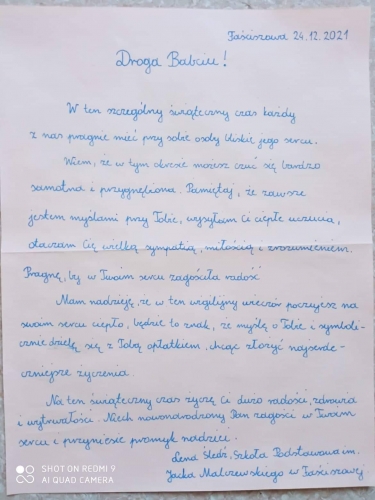 Faściszowa 24.12.2021
Droga Babciu!
W ten szczególny świąteczny czas każdy
z nas pragnie mieć przy sobie osoby bliskie jego sercu.
Wiem, że w tym okresie możesz czuć się bardzo
samotna i przygnębiona. Pamiętaj, że zawsze
jestem myślami przy Tobie, wysyłam Ci ciepłe uczucia,
otaczam Cię wielką sympatią, miłością i zrozumieniem.
Pragnę, by w Twoim sercu zagościła radość
Mam nadzieję, że w ten wigilijny wieczór poczujesz na
swoim sercu ciepło, będzie to znak, że myślę o Tobie i symboli-
cznie dzielę się z Tobą opłatkiem, chcąc złożyć najserde-
czniejsze życzenia.
Na ten świąteczny czas życzę Ci dużo radości, zdrowia
i wytrwałości. Niech nowonarodzony Pan zagości w Twoim
sercu i przyniesie promyk nadziei.
Lena Śledź, Szkoła Podstawowa im.
Jacka Malczewskiego w Faściszowej
SHOT ON REDMI 9
AI QUAD CAMERA